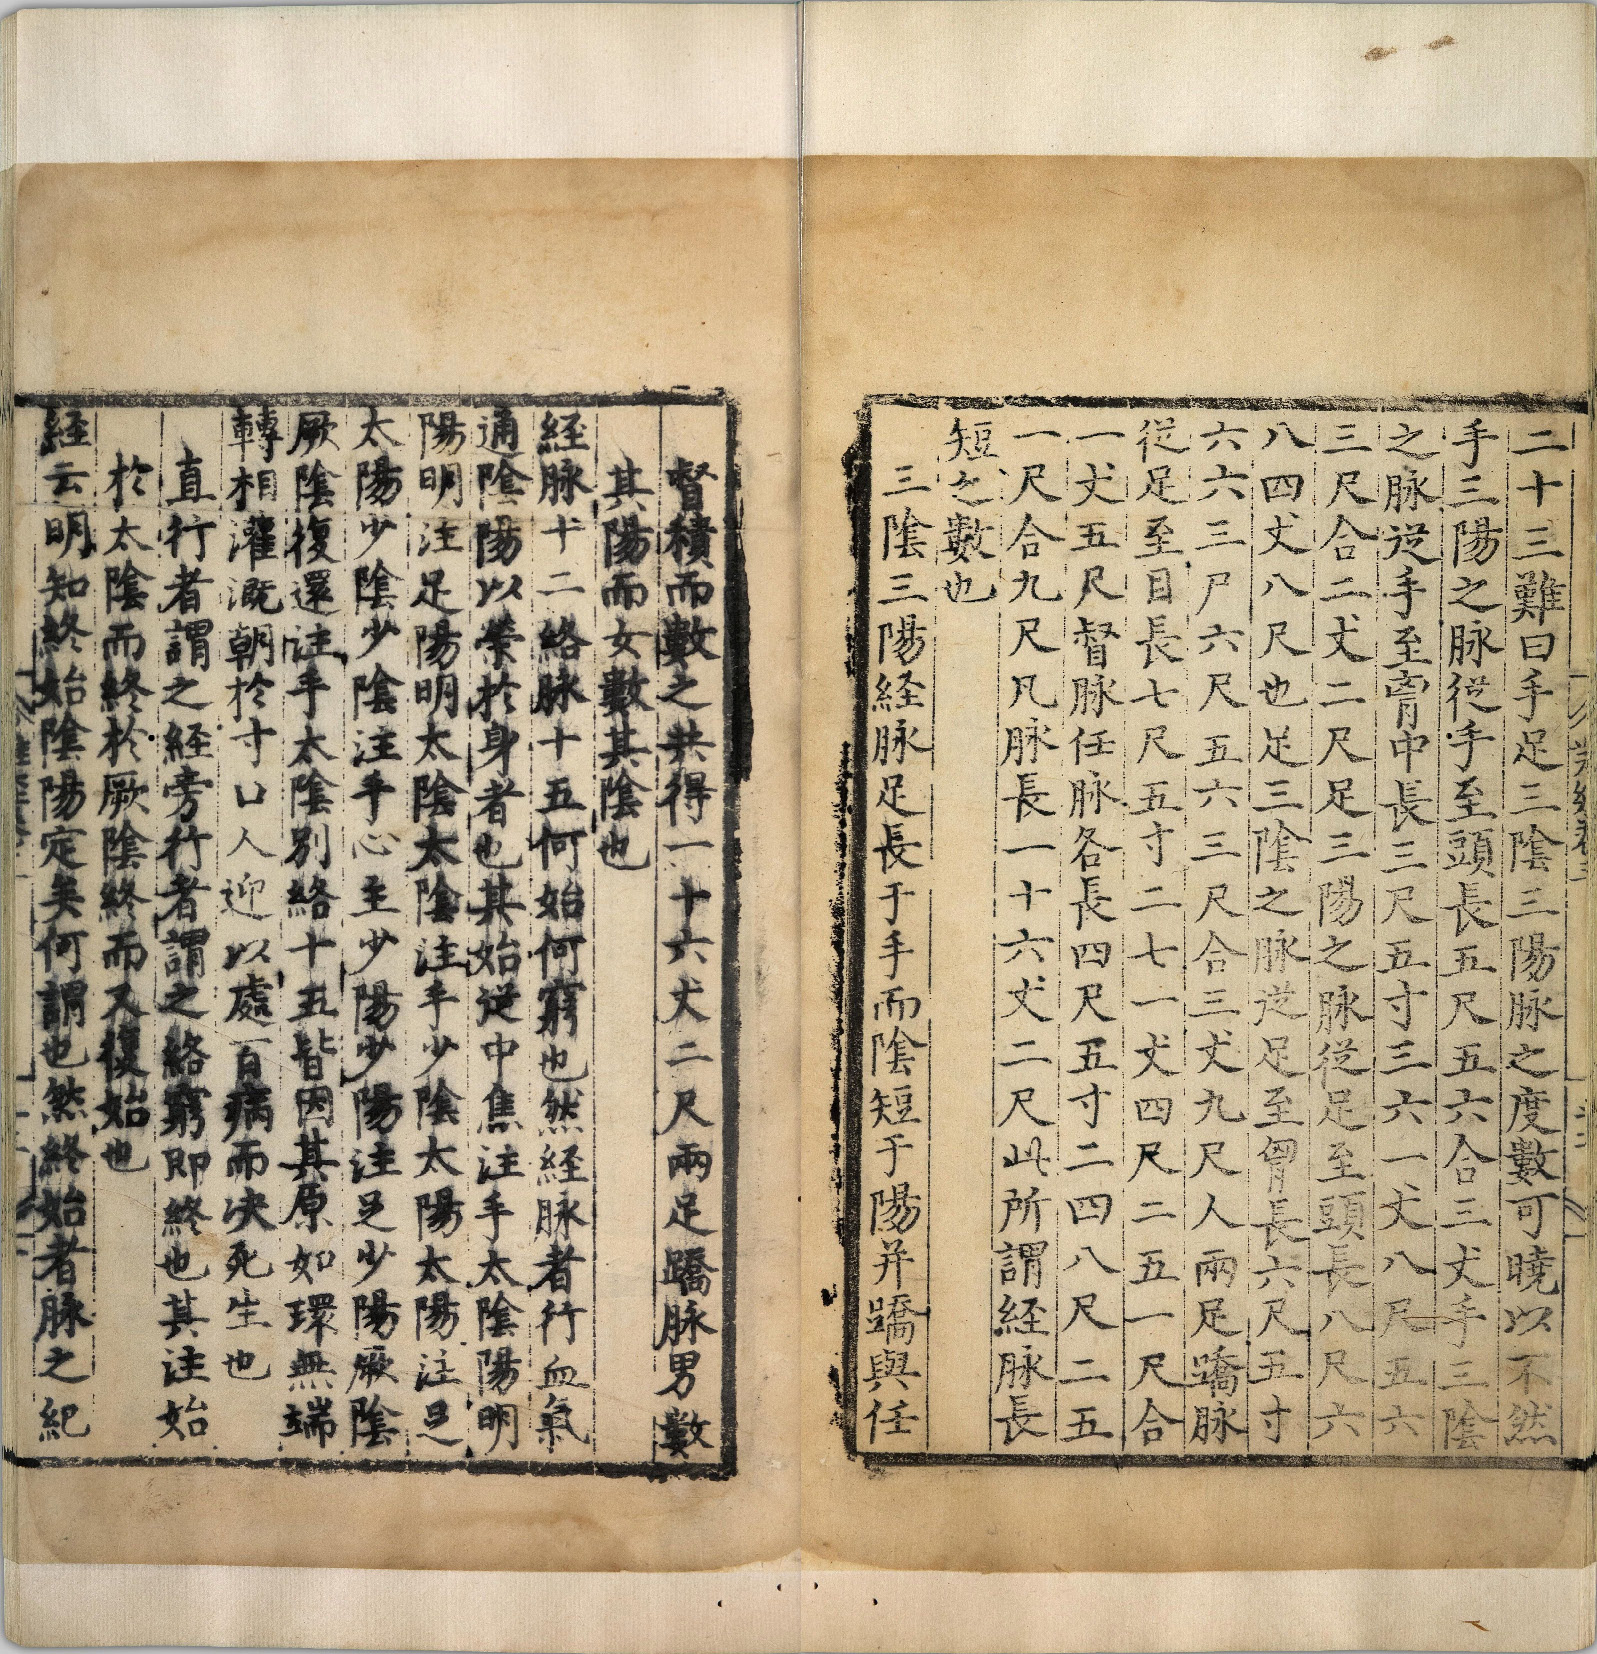 二十三難曰手足三陰三陽脉之度數可曉以不然
手三陽之脉從手至頭長五尺五六合三丈手三陰
之脉從手至胷中長三尺五寸三六一丈八尺五六
三尺合二丈二尺足三陽之脉從足至頭長八尺六
八四丈八尺也足三陰之脉從足至胷長六尺五寸
六六三尸六尺五六三尺合三丈九尺人兩足蹻脉
從足至目長七尺五寸二七一丈四尺二五一尺合
一丈五尺督脉任脉各長四尺五寸二四八尺二五
一尺合九尺凡脉長一十六丈二尺此所謂経脉長
短之數也
三陰三陽経脉足長于手而陰短于陽并蹻與任
督積而數之共得一十六丈二尺兩足蹻脉男數
其陽而女數其陰也
経脉十二絡脉十五何始何窮也然経脉者行血氣
通陰陽以榮於身者也其始從中焦注手太陰陽明
陽明注足陽明太陰太陰注手少陰太陽太陽注足
太陽少陰少陰注手心主少陽少陽注足少陽厥陰
厥陰復還注手太陰別絡十五皆因其原如環無端
轉相灌溉朝於寸口人迎以處百病而决死生也
直行者謂之経旁行者謂之絡窮即終也其注始
於太陰而終於厥陰終而又復始也
経云明知終始陰陽定矣何謂也然終始者脉之紀